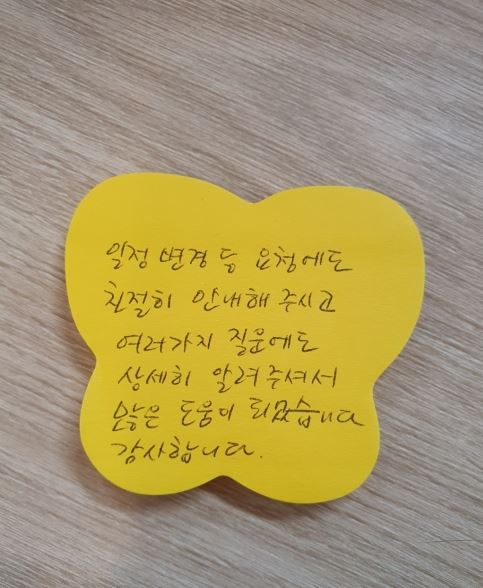 일정 변경 등 요청에도
친절히 안내해 주시고
여러가지 질문에도
상세히 알려주셔서
많은 도움이 되었습니다
감사합니다.